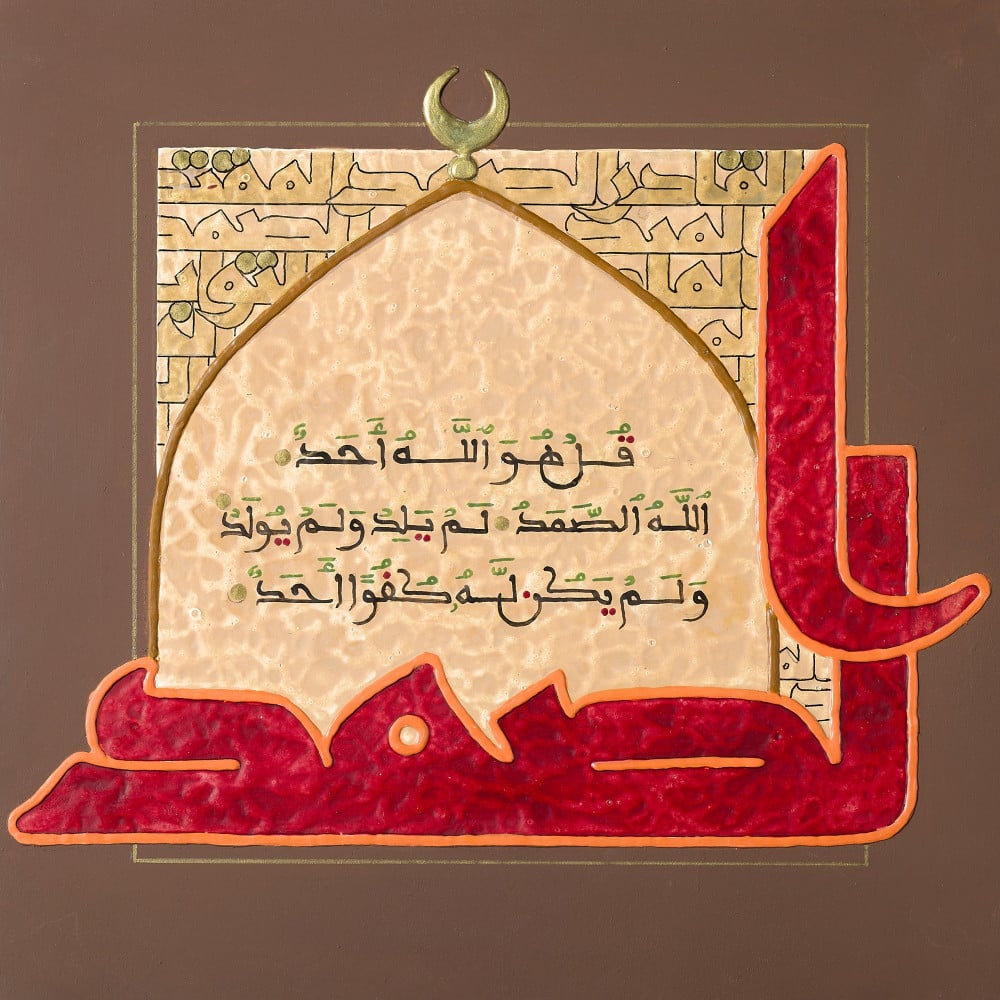 قُلْ هُوَ ٱللَّهُ أَحَدٌ
ٱللَّهُ ٱلصَّمَدُ لَمْ يَلِدْ وَلَمْ يُولَدْ
وَلَمْ يَكُن لَّهُۥ كُفُوًا أَحَدٌ
الصمد